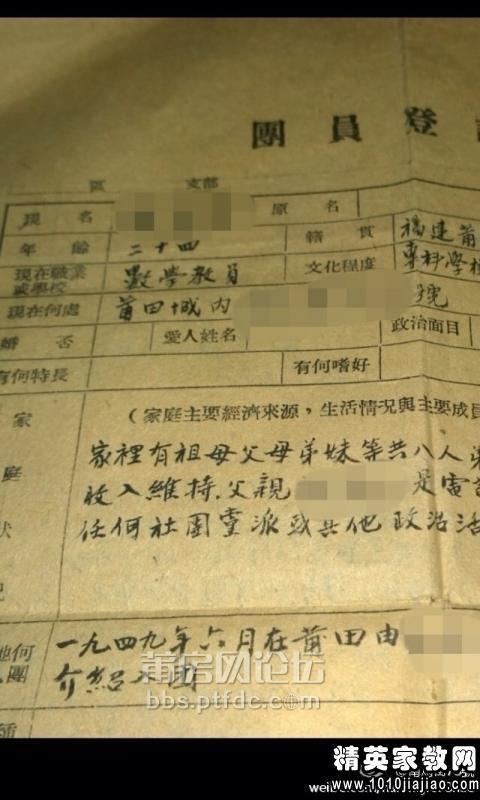 團員登
區 支部
現名 原名
年齡 二十四 籍貫 福建莆
現在職業或學校 數學教員 文化程度 專科學校
現在何處 莆田城內 號
婚否 愛人姓名 政治面目
有何特長 有何嗜好
家庭狀況
(家庭主要經濟來源,生活情況與主要成員
家裡有祖母父母弟妹等共八人
收入維持.父親 是
任何社團黨派或其他政治活
何
團
一九四九年六月在莆田由
介紹入團
種
莆房网论坛
bbs.ptfdc.com
精英家教网
www.1010jiajiao.com